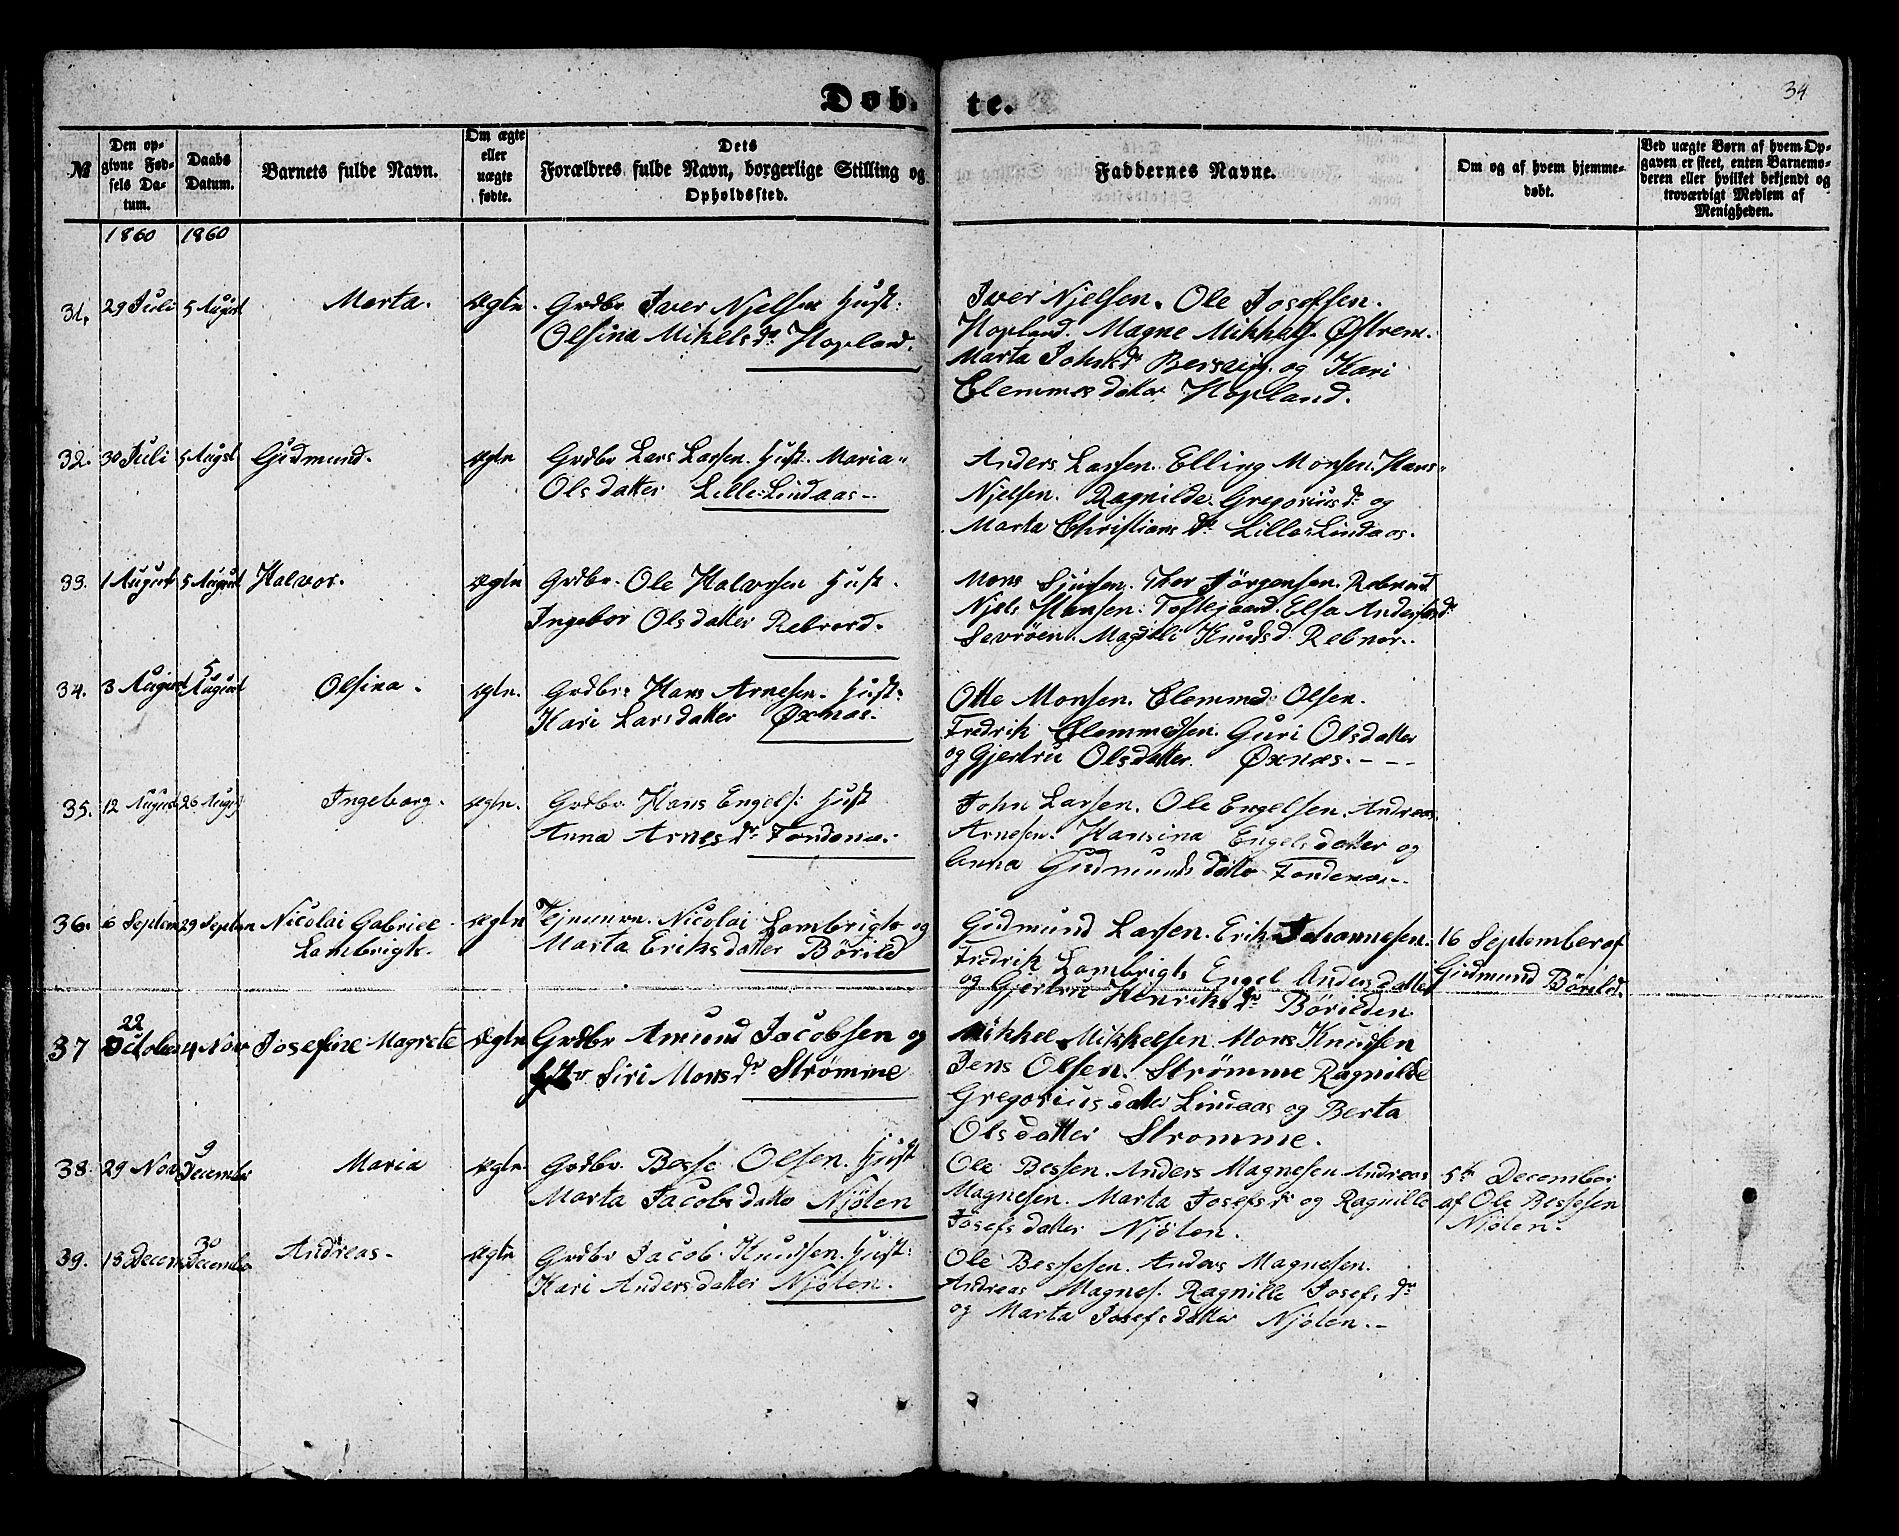 Døb- te.
34
№
Den op-
givne Fød-
sels Da-
tum.
Daabs
Datum.
Barnets fulde Navn.
Om ægte
eller
uægte
fødte.
Dets
Forældres fulde Navn, borgerlige Stilling og
Opholdssted.
Faddernes Navne.
Om og af hvem hjemme-
døbt.
Ved uægte Børn af hvem Op-
gaven er skeet, enten Barnemo-
deren eller hvilket bekjendt og
troværdigt Medlem af
Menigheden.
1860 1860
31. 29 Juli 5 August Marta. ægte. Grdbr Iver Njelsen Hust:
Olsina Mikels dr Hopland.
Iver Njelsen. Ole Josefsen.
Hopland. Magne Mikkels. Østrem.
Marta Johns dr Bersvig. og Kari
Clemmesdatter Hopland.
32. 30 Juli 5 Augst Gudmund. ægte Grdbr Lars Larsen. Hust. Maria
Olsdatter Lille Lindaas
Anders Larsen. Elling Monsen. Hans
Njelsen. Ragnilde. Gregorius dr og
Marta Christians dr Lille Lindaas.
33. 1 August 5 August Halvor. ægte Grdbr. Ole Halvorsen Hust.
Ingebor Olsdatter
Mons Sjursen. Thor Jörgensen.
Njels Hansen. Toftegaard. Elsa Anders dr
Sævröen. Magdeli Knudsd.
34. 3 August 5 August Olsina. ægte. Grdbr: Hans Arnesen. Hust:
Kari Larsdatter Øxnæs.
Otte Monsen. Clemmed Olsen.
Fredrik Clemmedsen. Guri Olsdatter
og Gjertru Olsdatter. Øxnæs.
35. 12 August 26 August Ingeborg. ægte. Grdbr. Hans Engels: Hust
Anna Arnes dr Fondenæs
John Larsen. Ole Engelsen. Andreas
Arnesen. Hansina Engelsdatter og
Anna Gudmundsdatter Fondenæs
36. 6 Septem 29 Septem Nicolai Gabriel
Lambrigts. ægte Nicolai Lambrigts og
Marta Eriksdatter Börild
Gudmund Larsen. Erik Johannesen.
Fredrik Lambrigts Engel Andersdatter
og Gjertru Henriks dr Börilden
16 September af
Gudmund Börild.
37 22 October 4 Nov Josefine Magrete ægte Grdbr Amund Jacobsen og
Siri Mons dr Strømme
Mikkel Mikkelsen. Mons Knudsen
Jens Olsen. Strømme Ragnilde
Gregoriusdatter Lindaas og Berta
Olsdatter Strømme.
38. 29 Nov 9 December Maria ægte Grdbr. Besse Olsen. Hust
Marta Jacobsdatter Njöten
Ole Bessen. Anders Magnesen Andreas
Magnesen. Marta Josefs dr og Ragnille
Josefsdatter Njöten.
5te December
af Ole Bessesen
Njöten.
39. 13 Decem 30 December Andreas ægte Grdbr Jacob Knudsen. Hust:
Kari Andersdatter Njöten.
Ole Bessesen. Anders Magnesen.
Andreas Magnes. Ragnille Josefs dr
og Marta Josefsdatter Njöten.